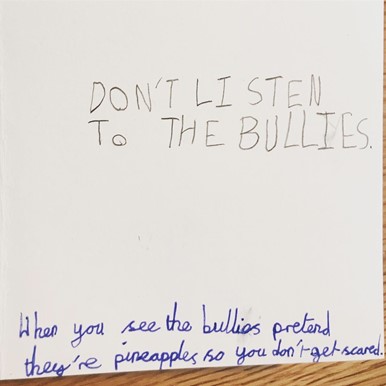 DON'T LISTEN
TO THE BULLIES.
When you see the bullies pretend
they're pineapples so you don't get scared.